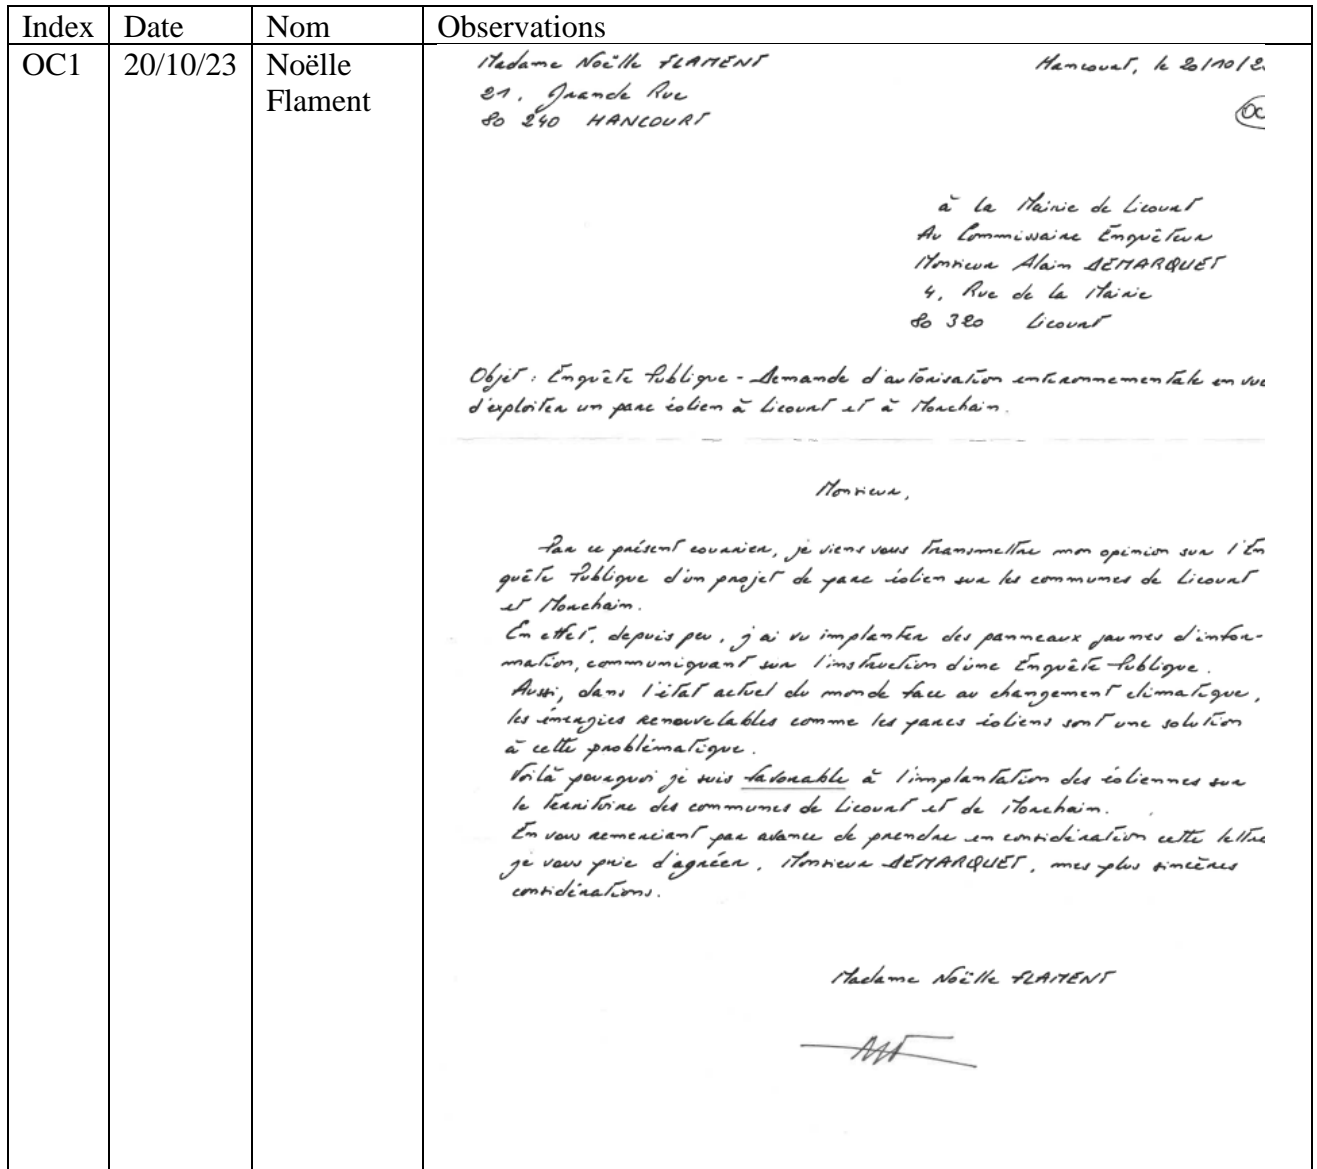 Index Date Nom Observations
OC1 20/10/23 Noëlle Flament
Madame Noëlle FLAMENT
Hancourt, le 20/10/2
21, Grande Rue
80 240 HANCOURT
OC
à la Mairie de Licourt
Au Commissaire Enquêteur
Monsieur Alain DEMARQUET
4, Rue de la Mairie
80 320 Licourt
Objet : Enquête Publique - Demande d'autorisation environnementale en vue
d'exploiter un parc éolien à Licourt et à Morchain.
Monsieur,
Par ce présent courrier, je viens vous transmettre mon opinion sur l'En
quête Publique d'un projet de parc éolien sur les communes de Licourt
et Morchain.
En effet, depuis peu, j'ai vu implanter des panneaux jaunes d'infor-
mation, communiquant sur l'instruction d'une Enquête Publique.
Aussi, dans l'état actuel du monde face au changement climatique,
les énergies renouvelables comme les parcs éoliens sont une solution
à cette problématique.
Voilà pourquoi je suis favorable à l'implantation des éoliennes sur
le territoire des communes de Licourt et de Morchain.
En vous remerciant par avance de prendre en considération cette lettre
je vous prie d'agréer, Monsieur DEMARQUET, mes plus sincères
considérations.
Madame Noëlle FLAMENT